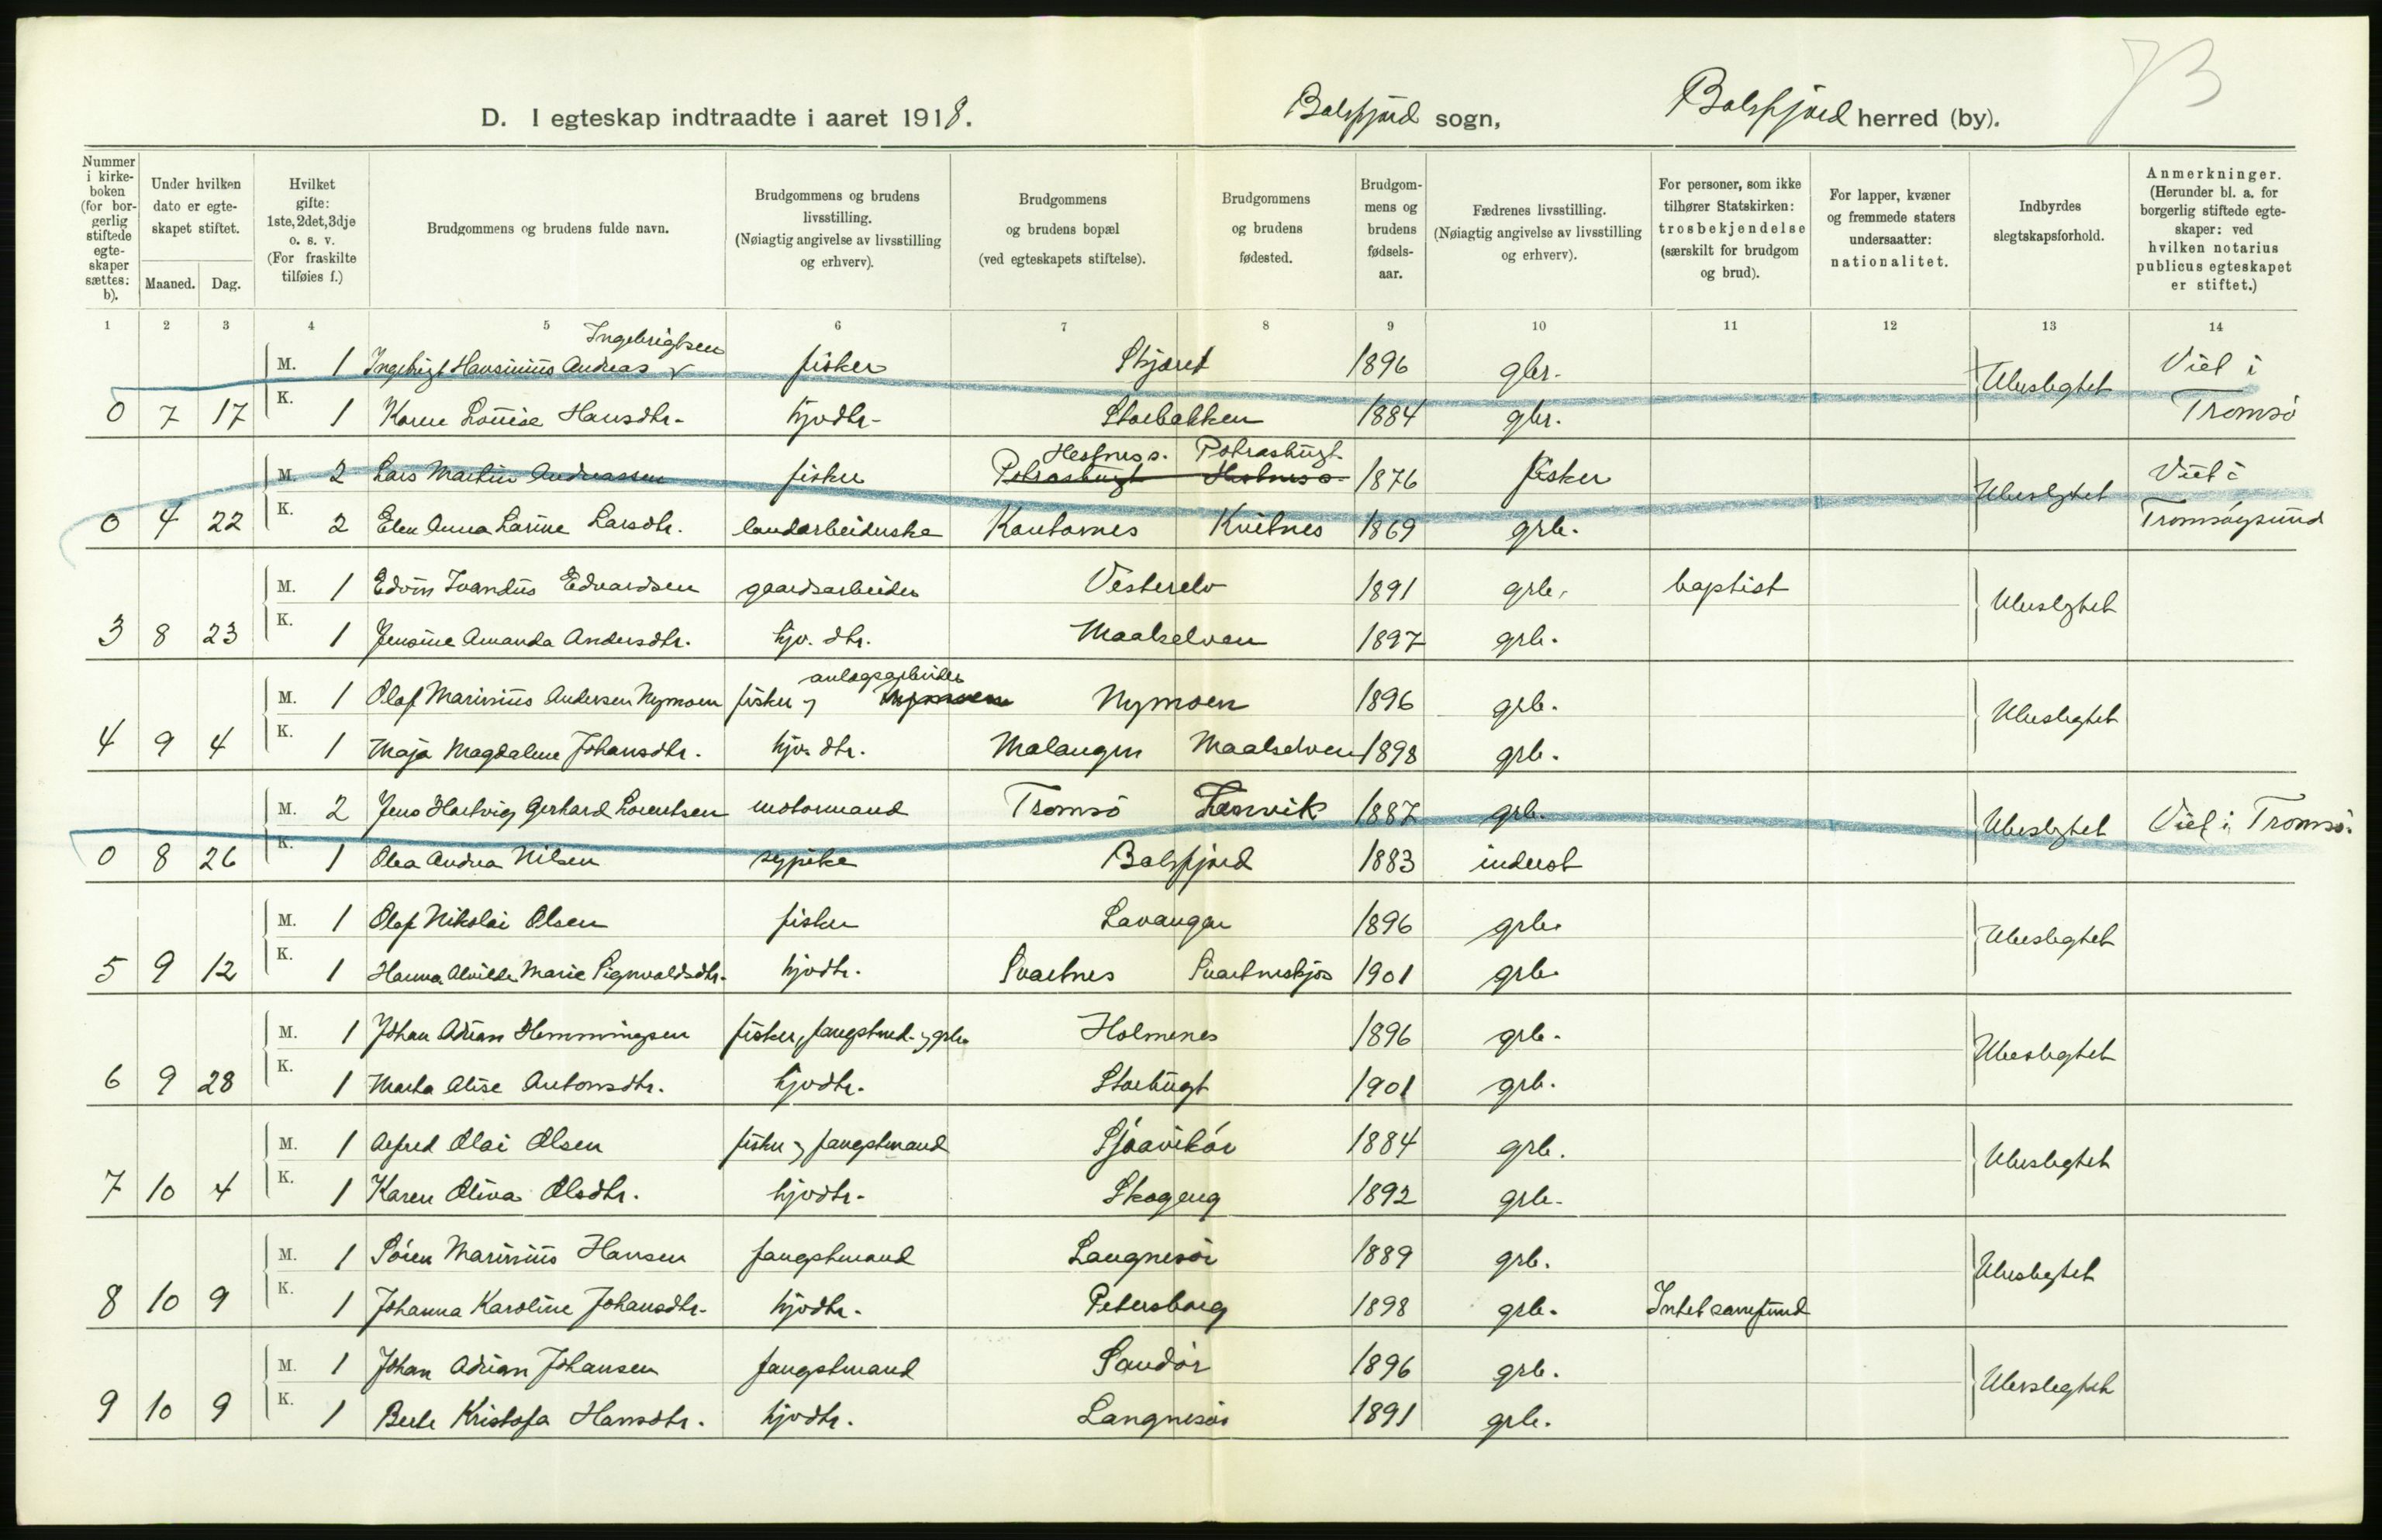 73
D. I egteskap indtraadte i aaret 1918. Balsfjord sogn, Balsfjord herred (by).
Nummer i kirke-boken (for bor-gerlig stiftede egte-skaper sættes: b).
Under hvilken dato er egte-skapet stiftet.
Maaned. Dag.
Hvilket gifte: 1ste, 2det, 3dje o. s. v. (For fraskilte tilføies f.)
Brudgommens og brudens fulde navn.
Brudgommens og brudens livsstilling. (Nøiagtig angivelse av livsstilling og erhverv).
Brudgommens og brudens bopæl (ved egteskapets stiftelse).
Brudgommens og brudens fødested.
Brudgom-mens og brudens fødsels-aar.
Fædrenes livsstilling. (Nøiagtig angivelse av livsstilling og erhverv).
For personer, som ikke tilhører Statskirken: trosbekjendelse (særskilt for brudgom og brud).
For lapper, kvæner og fremmede staters undersaatter: nationalitet.
Indbyrdes slegtskapsforhold.
Anmerkninger. (Herunder bl. a. for borgerlig stiftede egte-skaper: ved hvilken notarius publicus egteskapet er stiftet.)
1 2 3 4 5 6 7 8 9 10 11 12 13 14
Ingebrigtsen
M. 1 Ingebrigt Hansinius Andreas fisker 1896 gbr. Ubeslegtet Viet i
0 7 17 K. 1 Karen Louise Hansdtr. hjvdtr. Storbakken 1884 gbr. Tromsø
Hesfnes s. Potrasbugt
M. 2 Lars Martin Andreassen fisker Potrasbugt 1876 fisker Ubeslgtet Viet i
0 4 22 K. 2 Elen Anna Larine Larsdtr. landarbeiderske Kantornes Kvitnes 1869 grb. Tromsøysund
M. 1 Edvin Ivandus Edvardsen gaardsarbeider Vesterelv 1891 grb. baptist Ubeslgtet
3 8 23 K. 1 Jensine Amanda Andersdtr. hjv. dtr. Maalselven 1897 grb.
anlægsarbeider
M. 1 Olaf Marinius Andersen Nymoen fisker og Nymoen Nymoen 1896 grb. Ubeslegtet
4 9 4 K. 1 Maja Magdalene Johansdtr. hjv. dtr. Malangen Maalselven 1898 grb.
M. 2 Jens Hartvig Gerhard Lorentsen motormand Tromsø Lenvik 1887 grb. Ubeslegtet Viet i Tromsø.
0 8 26 K. 1 Olea Andrea Nilsen sypike Balsfjord 1883 inderst
M. 1 Olaf Nikolai Olsen fisker Lavangen 1896 grb. Ubeslegtet
5 9 12 K. 1 Hanna Alvilde Marie Signvaldsdtr. hjvdtr. Svartnes 1901 grb.
M. 1 Johan Adrian Hemmingsen fisker, fangstmd. og grbr. Holmenes 1896 grb. Ubeslegtet
6 9 28 K. 1 Marta Alise Antonsdtr. hjvdtr. Storbugt 1901 grb.
M. 1 Alfred Olai Olsen fisker og fangstmand Sjøavikør 1884 grb. Ubeslegtet
7 10 4 K. 1 Karen Oliva Olsdtr. hjvdtr. Skogeng 1892 grb.
M. 1 Sören Marinius Hansen fangstmand Langnesør 1889 grb. Ubeslegtet
8 10 9 K. 1 Johanna Karoline Johansdtr. hjvdtr. Petersborg 1898 grb. Intet samfund
M. 1 Johan Adrian Johansen fangstmand Sandør 1896 grb. Ubeslegtet
9 10 9 K. 1 Berte Kristofa Hansdtr. hjvdtr. Langnesør 1891 grb.